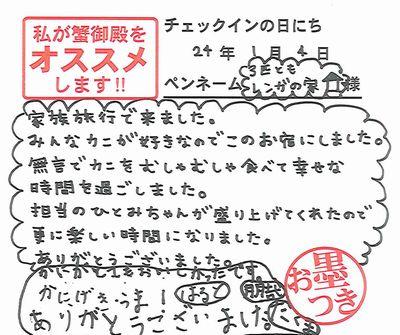 私が蟹御殿を
オススメ
します!!
チェックインの日にち
24年 1月 4日
ペンネーム 3匹ともレンガの家 様
家族旅行で来ました。
みんなカニが好きなのでこのお宿にしました。
無言でカニをむしゃむしゃ食べて幸せな
時間を過ごしました。
担当のひとみちゃんが盛り上げてくれたので
更に楽しい時間になりました。
ありがとうございました。
かにげきうまー
はると
ありがとうございました
お墨
つき